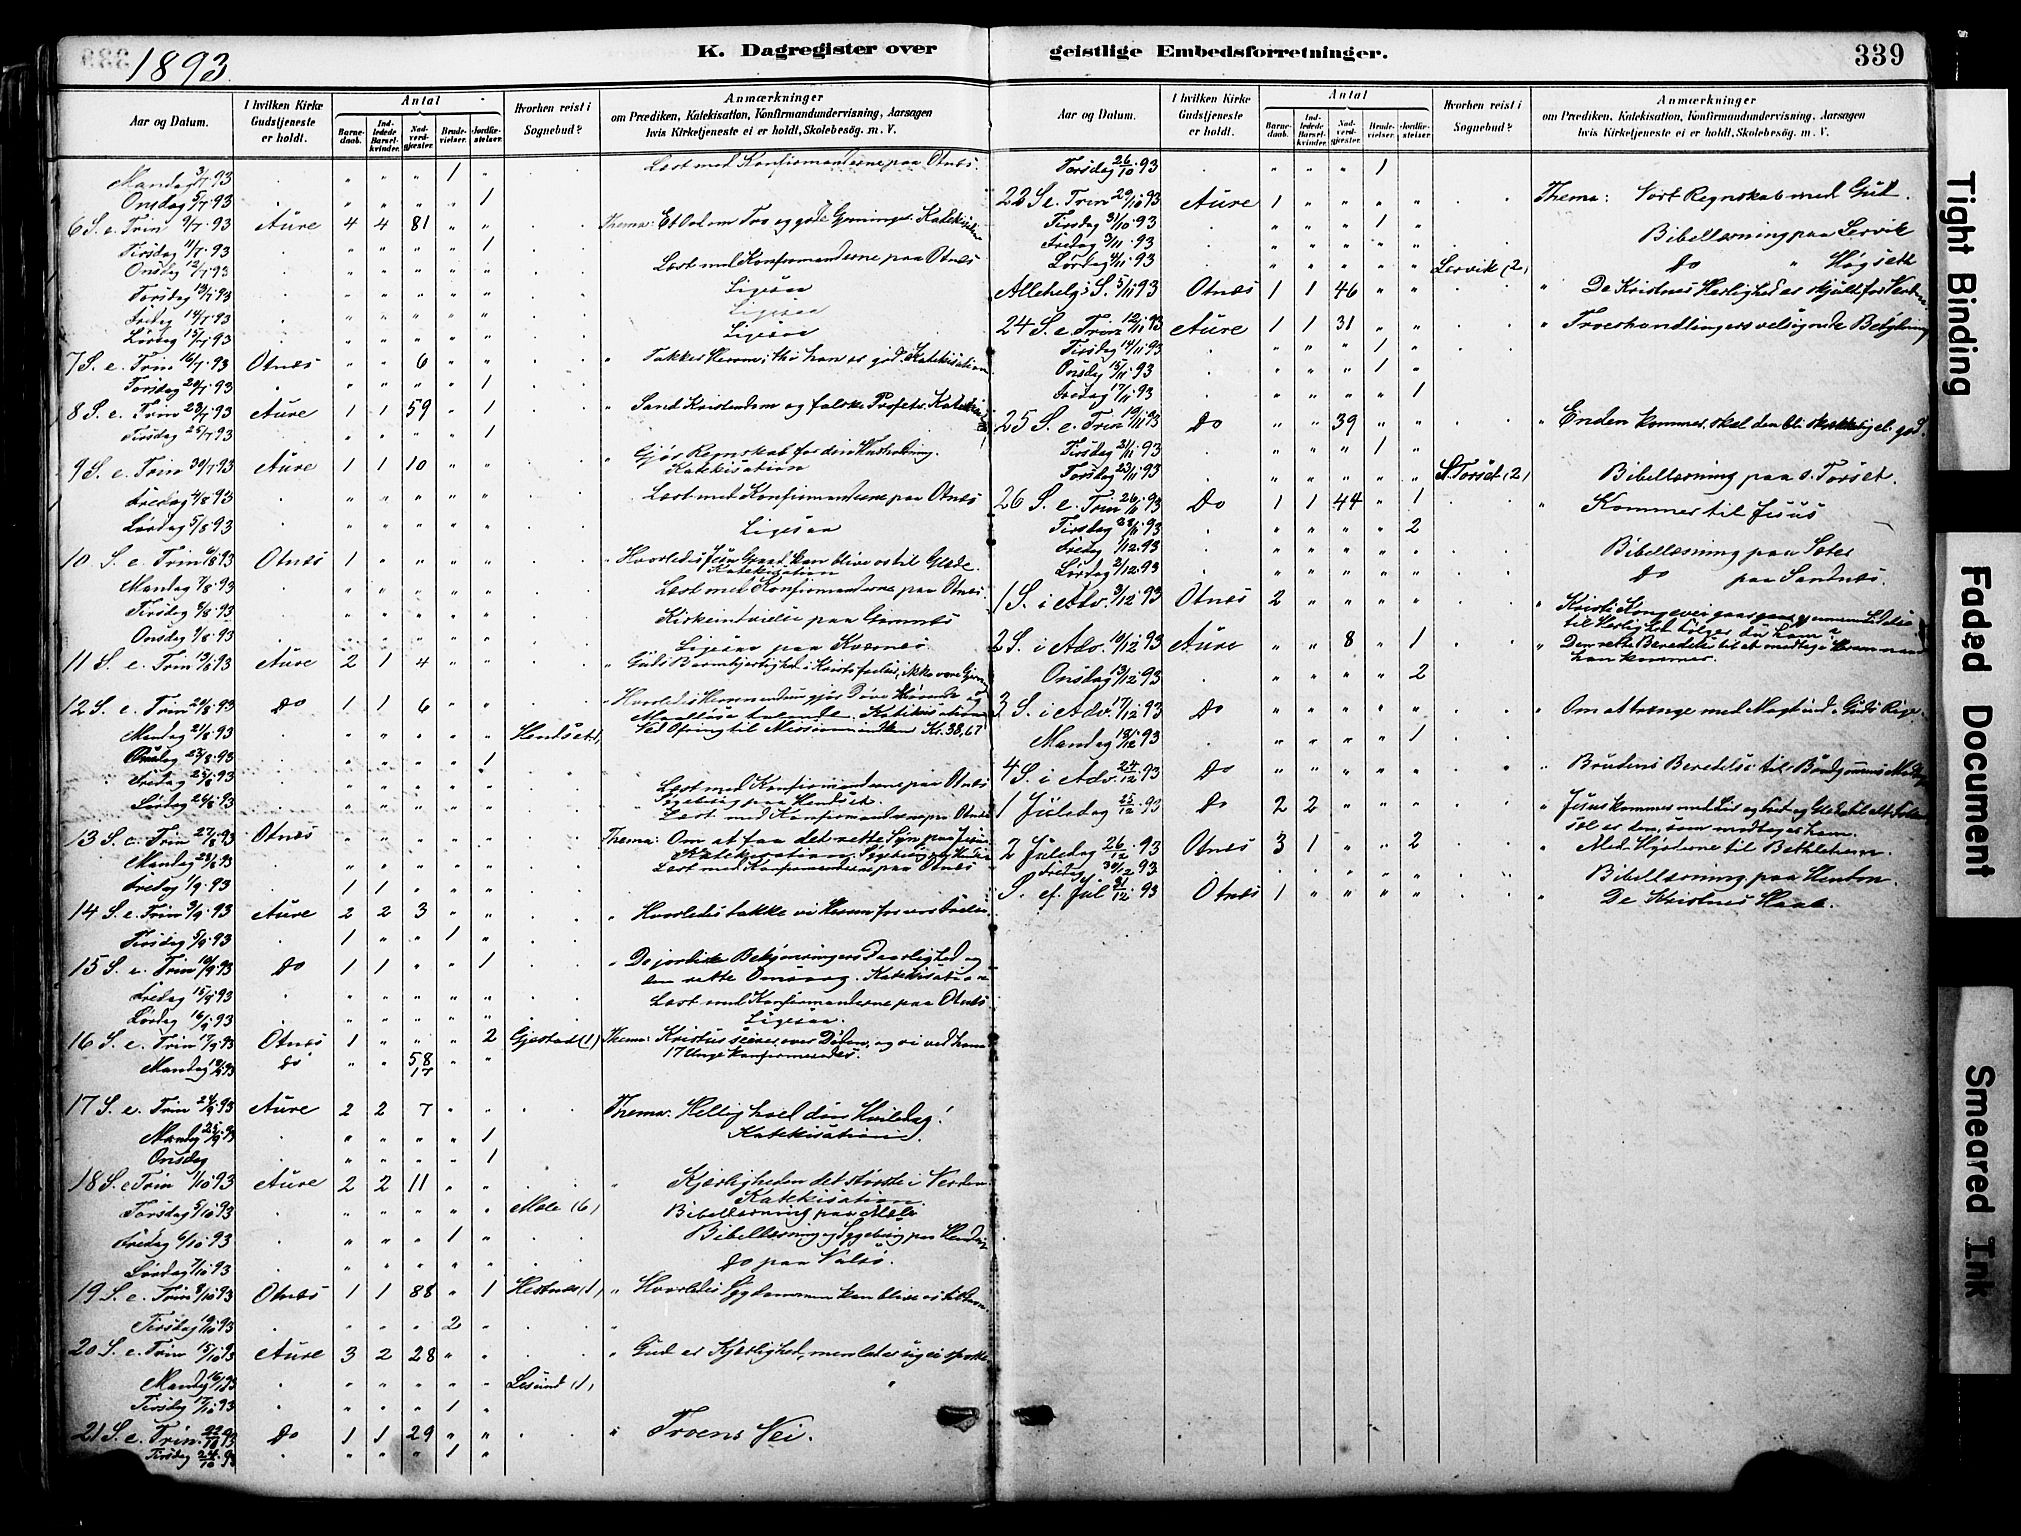 1893
K. Dagregister over
Aar og Datum.
I hvilken Kirke Gudstjeneste er holdt.
Antal
Barnedaab.
Indledede Barselkvinder.
Nadverdgjæster.
Brudevielser.
Jordfæstelser.
Hvorhen reist i Sognebud?
Anmærkninger
om Prædiken, Katekisation, Konfirmandundervisning, Aarsagen
hvis Kirketjeneste ei er holdt, Skolebesøg. m. V.
Mandag 3/7 93 1 Læst med Konfirmanderne paa Otnæs.
Onsdag 5/7 93 1
6 S. e. Trin 9/7 93 Aure 4 4 81 Thema: Et Ord om Tro og gode Gjerninger. Katekisation
Tirsdag 11/7 93 1
Onsdag 12/7 93 Læst med Konfirmanderne paa Otnæs
Torsdag 13/7 93 Ligesaa
Fredag 14/7 93 Ligesaa
Lørdag 15/7 93 Ligesaa
7 S. e. Trin 16/7 93 Otnæs 6 " Takker Herren, thi han er god. Katekisation
Torsdag 20/7 93 1
8 S. e. Trin 23/7 93 Aure 1 1 59 1 " Sand Kristendom og falske Profeter.
Tirsdag 25/7 93 1
9 S. e. Trin 30/7 93 Aure 1 1 10 " Gjør Regnskab for din Husholdning.
Katekisation
Fredag 4/8 93 Læst med Konfirmanderne paa Otnæs
Lørdag 5/8 93 Ligesaa
10 S. e. Trin 6/8 93 Otnæs 1 " Hvorledes Jesu Graad kan blive os til Glæde.
Katekisation
Mandag 7/8 93 Læst med Konfirmanderne paa Otnæs
Tirsdag 8/8 93 Kirkeindvielse paa
Onsdag 9/8 93 Ligesaa paa Kvernes
11 S. e. Trin 13/8 93 Aure 2 1 4 " Guds Barmhjertighed i Kristo
12 S. e. Trin 20/8 93 Do 1 1 6 " Hvorledes Herren endnu gjør Døve Hørende og
Maalløse talende. Katekisation
Mandag 21/8 93 Hendset 1 Ved Ofring til Missionen Kr. 38,67
Onsdag 23/8 93 1
Fredag 25/8 93 Læst med Konfirmanderne paa Otnæs
Sygebesøg paa Hendset.
Lørdag 26/8 93 Læst med Konfirmanderne paa Otnæs
13 S. e. Trin 27/8 93 Otnæs Thema: Om at faa det rette Syn paa Jesus
Mandag 28/8 93 Læst med Konfirmanderne paa Otnæs
Fredag 1/9 93 1 1
14 S. e. Trin 3/9 93 Aure 2 2 3 " Hvorledes takke vi Herren for vor Frelse
Tirsdag 5/9 93 1 1
15 S. e. Trin 10/9 93 Do 1 1 1 " De jordiske Bekymringers Daarlighed og
den rette Omsorg. Katekisation
Fredag 15/9 93 Læst med Konfirmanderne paa Otnæs
Lørdag 16/9 93 Ligesaa.
16 S. e. Trin 17/9 93 Otnæs 1 2 Gjestad (1) Thema: Kristus seirer over Døden, og vi ved ham
Mandag 18/9 93 do 58 17 17 Unge konfirmeredes.
17 S. e. Trin 24/9 93 Aure 2 2 7 Thema: Hellig hold din Hviledag!
Katekisation.
Mandag 25/9 93 1
Onsdag 1
18 S. e Trin 1/10 93 Aure 2 2 11 " Kjærligheden det største i Verden
Katekisation
Torsdag 5/10 93 Mæle (6) Bibellæsning paa Mæle
Fredag 6/10 93 1 Bibellæsning og Sygebesøg paa
Lørdag 7/10 93 do paa Valsø.
19 S. e. Trin 8/10 93 Otnæs 1 1 88 1 Hestnæs (1) " Hvorledes Sygdommen kan blive os til
Tirsdag 10/10 93 2
20 S. e. Trin 15/10 93 Aure 3 2 28 " Gud er Kjærlighed, men lader sig ei spotte
Mandag 16/10 93 Lesund (1)
Tirsdag 17/10 93 1
21 S. e. Trin. 22/10 93 Do 1 1 29 " Troens Vei.
Tirsdag 24/10 93 1
geistlige Embedsforretninger.
339
Aar og Datum.
I hvilken Kirke Gudstjeneste er holdt.
Antal
Barnedaab.
Indledede Barselkvinder.
Nadverdgjæster.
Brudevielser.
Jordfæstelser.
Hvorhen reist i Sognebud?
Anmærkninger
om Prædiken, Katekisation, Konfirmandundervisning, Aarsagen
hvis Kirketjeneste ei er holdt, Skolebesøg. m. V.
Torsdag 26/10 93 1
22 S. e. Trin 29/10 93 Aure 1 Thema: Vort Regnskab med Gud.
Tirsdag 31/10 93 1
Fredag 3/11 93 Bibellæsning paa Lervik
Lørdag 4/11 93 Lervik (2) Do " Høgseth
Allehelg. S. 5/11 93 Otnæs 1 1 46 " De Kristnes Herlighed er skjult for Verden
24 S. e. Trin 12/11 93 Aure 1 1 31 " Troeshandlingers velsignede Betydning
Tirsdag 14/11 93 1
Onsdag 15/11 93 1
Fredag 17/11 93 1
25 S. e. Trin 19/11 93 Do 39 " Enden kommer, skal den bli skrækkelig el. god.
Tirsdag 21/11 93 1
Torsdag 23/11 93 S. Torset (2) Bibellæsning paa S. Torset.
26 S. e. Trin 26/11 93 Do 1 1 44 1 " Kommer til Jesus
Tirsdag 28/11 93 2
Fredag 1/12 93 Bibellæsning paa Sæter
Lørdag 2/12 93 Do paa Sandnæs.
1 S. i Adv. 3/12 93 Otnæs 2 " Kristi Kongevei gaar gjennem Lidelse
til Herlighed. Følger du ham?
2 S. i Adv. 10/12 93 Aure 8 1 " Den rette Beredelse til at modtage Herren naar
han kommer.
Onsdag 13/12 93 2
3 S. i Adv. 17/12 93 Do " Om at trænge med Magt ind i Guds Rige.
Mandag 18/12 93 1
4 S. i Adv. 24/12 93 Do " Brudens Beredelse til Brudgommens
1 Juledag 25/12 93 Do 2 2 " Jesus kommer med Lys og Fred og Glæde til alt Folket
Sæl er den, som modtager ham.
2 Juledag 26/12 93 Otnæs 3 1 2 " Med Hyrderne til Bethlehem.
Fredag 30/12 93 Bibellæsning paa
S. ef. Jul 31/12 93 Otnæs 1 " De Kristnes Haab.
Tight Binding
Faded Document
Smeared Ink